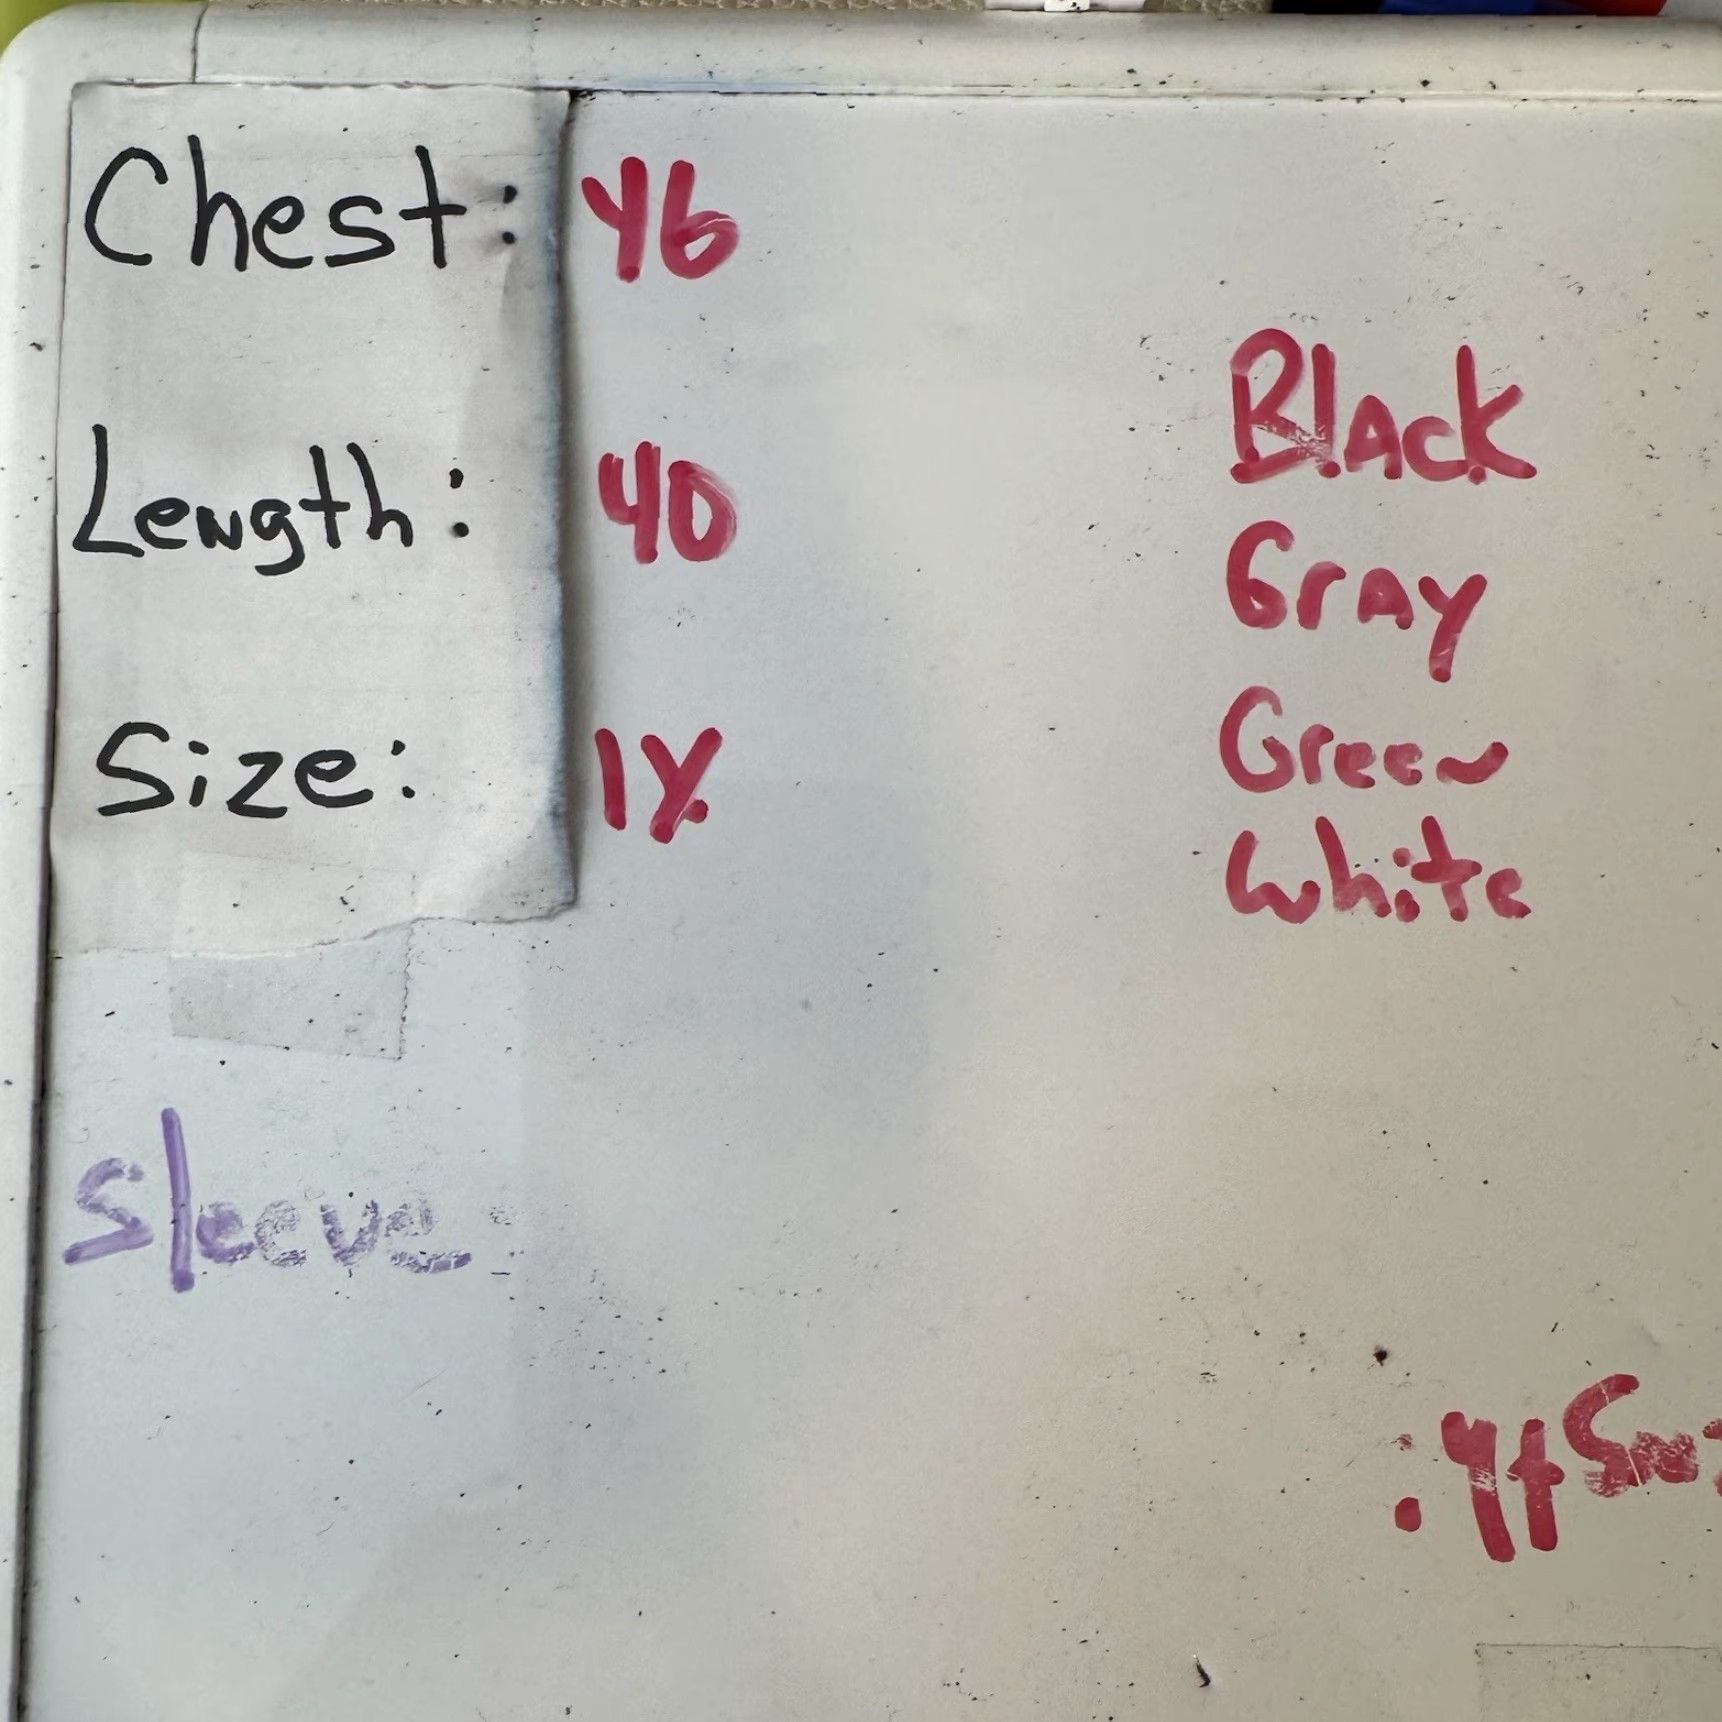 Chest: 46
Length: 40
Size: 1X
Black
Gray
Green
White
Sleeve